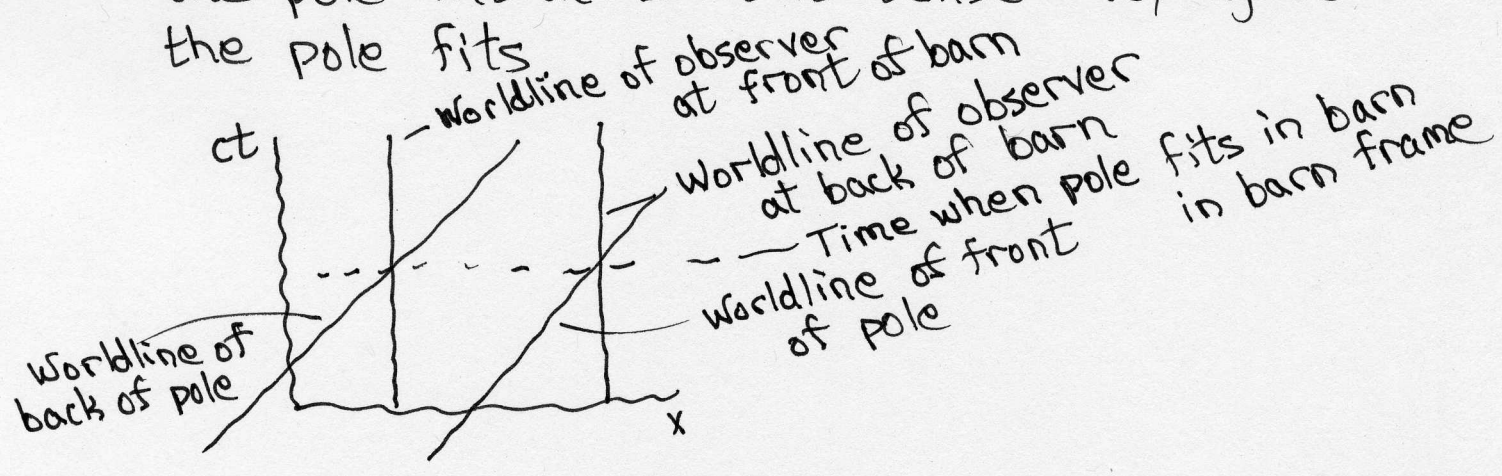 the pole fits
ct
Worldline of observer
at front of barn
Worldline of observer
at back of barn
Time when pole fits in barn
in barn frame
Worldline of front
of pole
Worldline of
back of pole
x